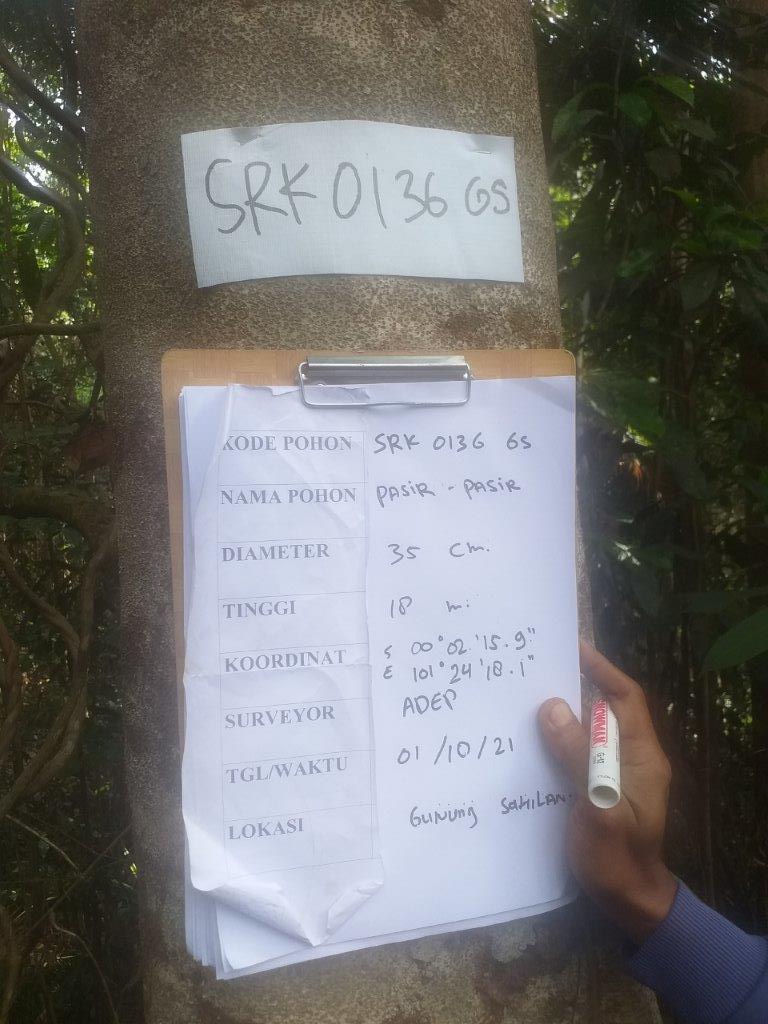 SRK 0136 GS
KODE POHON SRK 0136 GS
NAMA POHON PASIR - PASIR
DIAMETER 35 cm.
TINGGI 18 m.
KOORDINAT S 00°02'15.9"
E 101°24'18.1"
SURVEYOR ADEP
TGL/WAKTU 01/10/21
LOKASI GUNUNG SAHILAN.
SNOWMAN